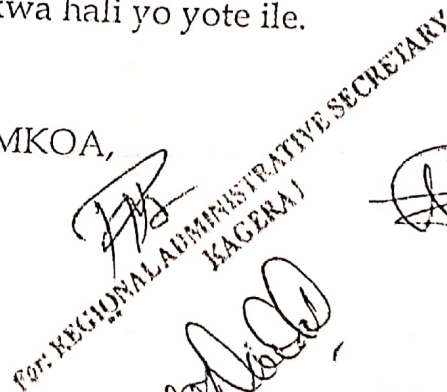 kwa hali yo yote ile.
MKOA,
For: REGIONAL ADMINISTRATIVE SECRETARY
KAGERA